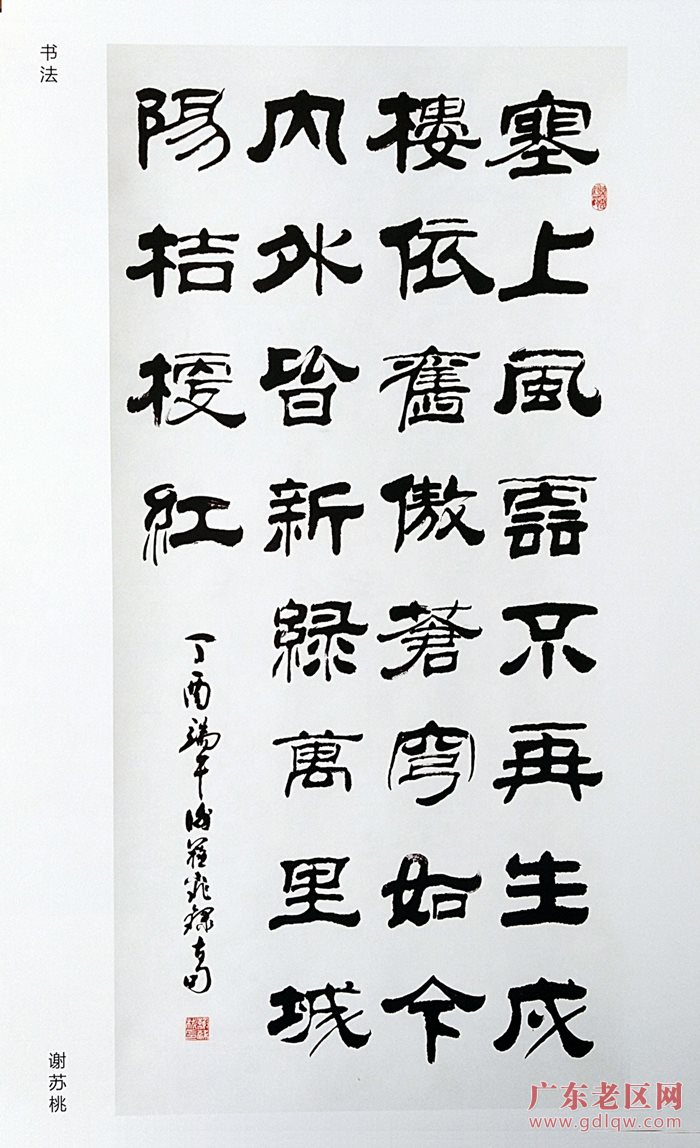 书法
塞上風雲不再生戍
樓依舊傲蒼穹如今
內外皆新綠萬里城
陽桔梗紅
丁酉端午謝蘇桃錄
谢苏桃
广东老区网
www.gdlqw.com